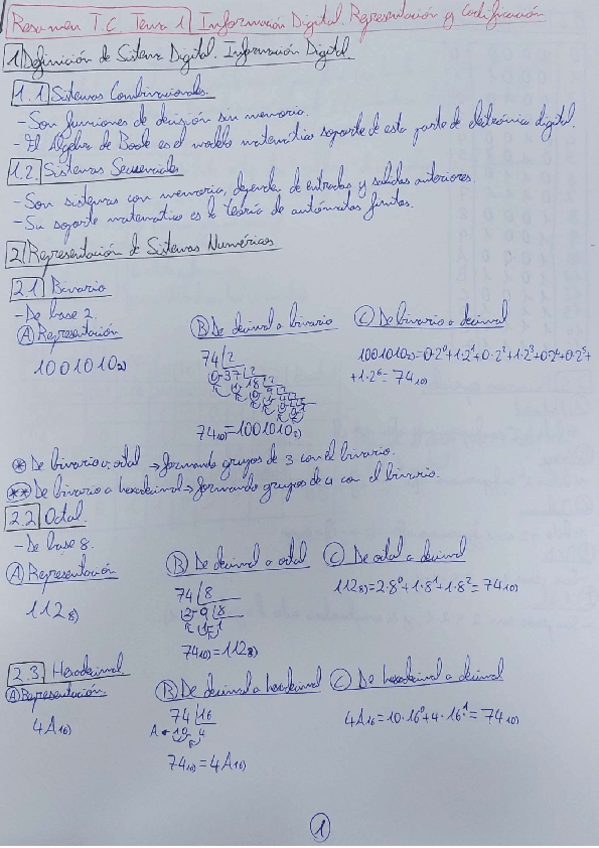 Resumen T.C. Tema 1 Información Digital. Representación y Codificación
1 Definición de Sistema Digital. Información Digital.
1.1 Sistemas Combinacionales.
- Son funciones de decisión sin memoria.
- El Álgebra de Boole es el modelo matemático soporte de esta parte de electrónica digital.
1.2. Sistemas Secuenciales
- Son sistemas con memoria, dependen de entradas y salidas anteriores.
- Su soporte matemático es la teoría de autómatas finitos.
2 Representación de Sistemas Numéricos
2.1 Binario
- De base 2.
A Representación
1001010₂)
B De decimal a binario
74 | 2
0 37 | 2
1 18 | 2
0 9 | 2
74₁₀) = 1001010₂)
C De binario a decimal
1001010₂) = 0·2⁰+1·2¹+0·2²+1·2³+0·2⁴+0·2⁵+
+1·2⁶ = 74₁₀)
* De binario a octal → formando grupos de 3 con el binario.
** De binario a hexadecimal → formando grupos de 4 con el binario.
2.2 Octal.
- De base 8.
A Representación
112₈)
B De decimal a octal
74 | 8
2 9 | 8
1 1
74₁₀) = 112₈)
C De octal a decimal
112₈) = 2·8⁰+1·8¹+1·8² = 74₁₀)
2.3 Hexadecimal
A Representación
4A₁₆)
B De decimal a hexadecimal
74 | 16
A ← 10 4
74₁₀) = 4A₁₆)
C De hexadecimal a decimal
4A₁₆) = 10·16⁰+4·16¹ = 74₁₀)
1